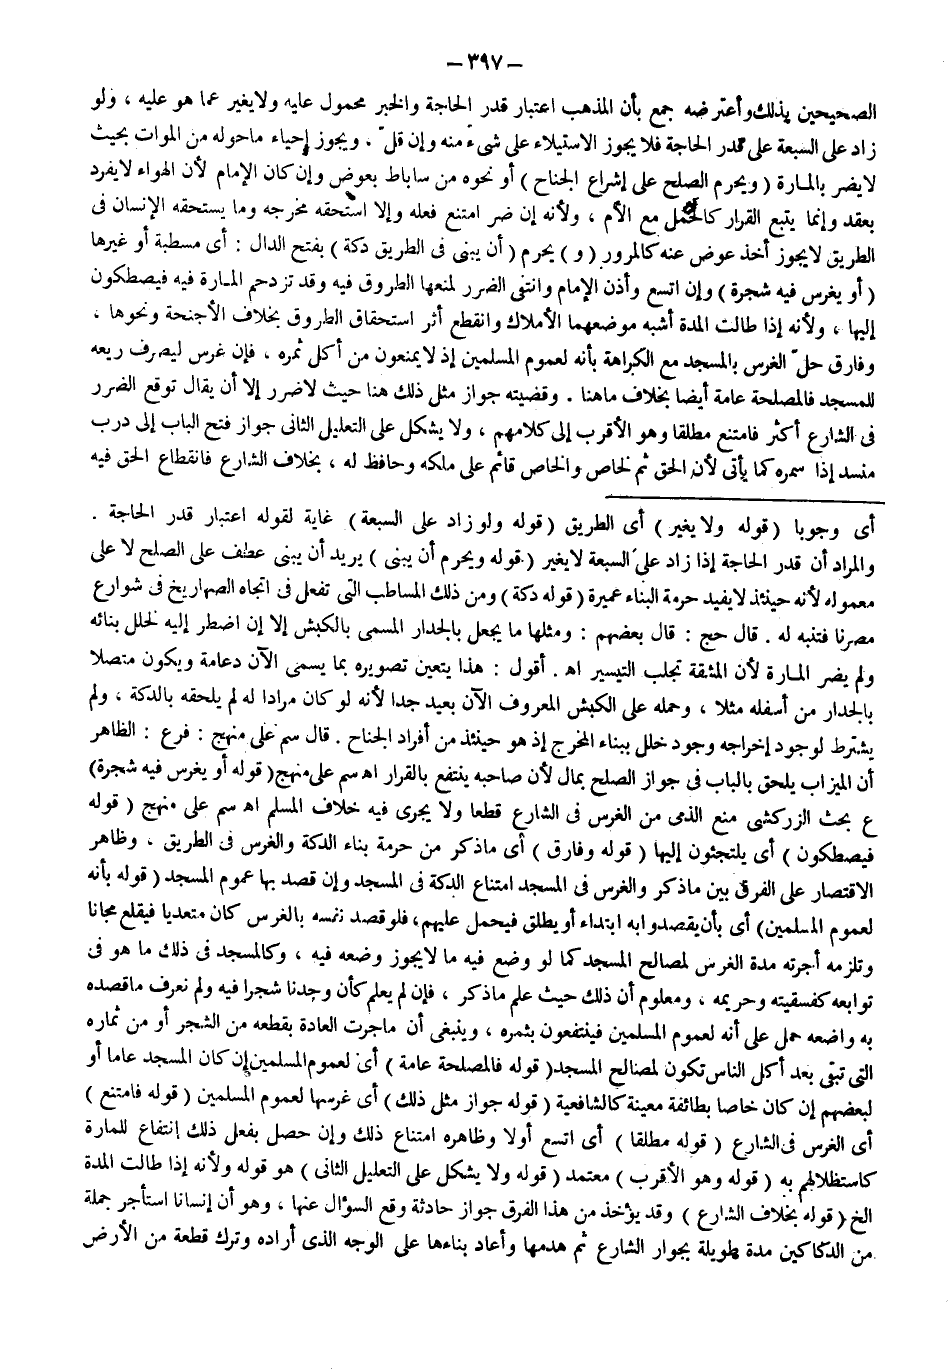 — ٣٩٧ —
الصحيحين بذلك وأعترضه جمع بأن المذهب اعتبار قدر الحاجة والخبر محمول عليه ولايغير عما هو عليه ، ولو
زاد على السبعة على قدر الحاجة فلا يجوز الاستيلاء على شىء منه وإن قلّ ، ويجوز إحياء ماحوله من الموات بحيث
لايضر بالمارة ( ويحرم الصلح على إشراع الجناح ) أو نحوه من ساباط بعوض وإن كان الإمام لأن الهواء لايفرد
بعقد وإنما يتبع القرار كالحمل مع الأم ، ولأنه إن ضر امتنع فعله وإلا استحقه مخرجه وما يستحقه الإنسان فى
الطريق لايجوز أخذ عوض عنه كالمرور ( و ) يحرم ( أن يبنى فى الطريق دكة ) بفتح الدال : أى مسطبة أو غيرها
( أو يغرس فيه شجرة ) وإن اتسع وأذن الإمام وانتفى الضرر لمنعها الطروق فيه وقد تزدحم المارة فيه فيصطكون
إليها ، ولأنه إذا طالت المدة أشبه موضعهما الأملاك وانقطع أثر استحقاق الطروق بخلاف الأجنحة ونحوها ،
وفارق حلّ الغرس بالمسجد مع الكراهة بأنه لعموم المسلمين إذ لايمنعون من أكل ثمره ، فإن غرس ليصرف ريعه
للمسجد فالمصلحة عامة أيضا بخلاف ماهنا . وقضيته جواز مثل ذلك هنا حيث لاضرر إلا أن يقال توقع الضرر
فى الشارع أكثر فامتنع مطلقا وهو الأقرب إلى كلامهم ، ولا يشكل على التعليل الثانى جواز فتح الباب إلى درب
منسد إذا سمره كما يأتى لأن الحق ثم لخاص والخاص قائم على ملكه وحافظ له ، بخلاف الشارع فانقطاع الحق فيه
أى وجوبا ( قوله ولا يغير ) أى الطريق ( قوله ولو زاد على السبعة ) غاية لقوله اعتبار قدر الحاجة .
والمراد أن قدر الحاجة إذا زاد على السبعة لايغير ( قوله ويحرم أن يبنى ) يريد أن يبنى عطف على الصلح لا على
معموله لأنه حينئذ لايفيد حرمة البناء عميرة ( قوله دكة ) ومن ذلك المساطب التى تفعل فى اتجاه الصهاريج فى شوارع
مصرنا فتنبه له . قال حج : قال بعضهم : ومثلها ما يجعل بالجدار المسمى بالكبش إلا إن اضطر إليه لخلل بنائه
ولم يضر المارة لأن المشقة تجلب التيسير اهـ . أقول : هذا يتعين تصويره بما يسمى الآن دعامة ويكون متصلا
بالجدار من أسفله مثلا ، وحمله على الكبش المعروف الآن بعيد جدا لأنه لو كان مرادا له لم يلحقه بالدكة ، ولم
يشترط لوجود إخراجه وجود خلل ببناء المخرج إذ هو حينئذ من أفراد الجناح . قال سم على منهج : فرع : الظاهر
أن الميزاب يلحق بالباب فى جواز الصلح بمال لأن صاحبه ينتفع بالقرار اهـ سم على منهج ( قوله أو يغرس فيه شجرة)
ع بحث الزركشى منع الذمى من الغرس فى الشارع قطعا ولا يجرى فيه خلاف المسلم اهـ سم على منهج ( قوله
فيصطكون ) أى يلتجئون إليها ( قوله وفارق ) أى ماذكر من حرمة بناء الدكة والغرس فى الطريق ، وظاهر
الاقتصار على الفرق بين ماذكر والغرس فى المسجد امتناع الدكة فى المسجد وإن قصد بها عموم المسجد ( قوله بأنه
لعموم المسلمين) أى بأن يقصدوا به ابتداء أو يطلق فيحمل عليهم، فلو قصد نفسه بالغرس كان متعديا فيقلع مجانا
وتلزمه أجرته مدة الغرس لمصالح المسجد كما لو وضع فيه ما لايجوز وضعه فيه ، وكالمسجد فى ذلك ما هو فى
توابعه كفسقيته وحريمه ، ومعلوم أن ذلك حيث علم ماذكر ، فإن لم يعلم كأن وجدنا شجرا فيه ولم نعرف ماقصده
به واضعه حمل على أنه لعموم المسلمين فينتفعون بثمره ، وينبغى أن ماجرت العادة بقطعه من الشجر أو من ثماره
التى تبقى بعد أكل الناس تكون لمصالح المسجد( قوله فالمصلحة عامة ) أى لعموم المسلمين إن كان المسجد عاما أو
لبعضهم إن كان خاصا بطائفة معينة كالشافعية ( قوله جواز مثل ذلك ) أى غرسها لعموم المسلمين ( قوله فامتنع )
أى الغرس فى الشارع ( قوله مطلقا ) أى اتسع أولا وظاهره امتناع ذلك وإن حصل بفعل ذلك إنتفاع للمارة
كاستظلالهم به ( قوله وهو الأقرب ) معتمد ( قوله ولا يشكل على التعليل الثانى ) هو قوله ولأنه إذا طالت المدة
الخ ( قوله بخلاف الشارع ) وقد يؤخذ من هذا الفرق جواز حادثة وقع السؤال عنها ، وهو أن إنسانا استأجر جملة
من الدكاكين مدة طويلة بجوار الشارع ثم هدمها وأعاد بناءها على الوجه الذى أراده وترك قطعة من الأرض